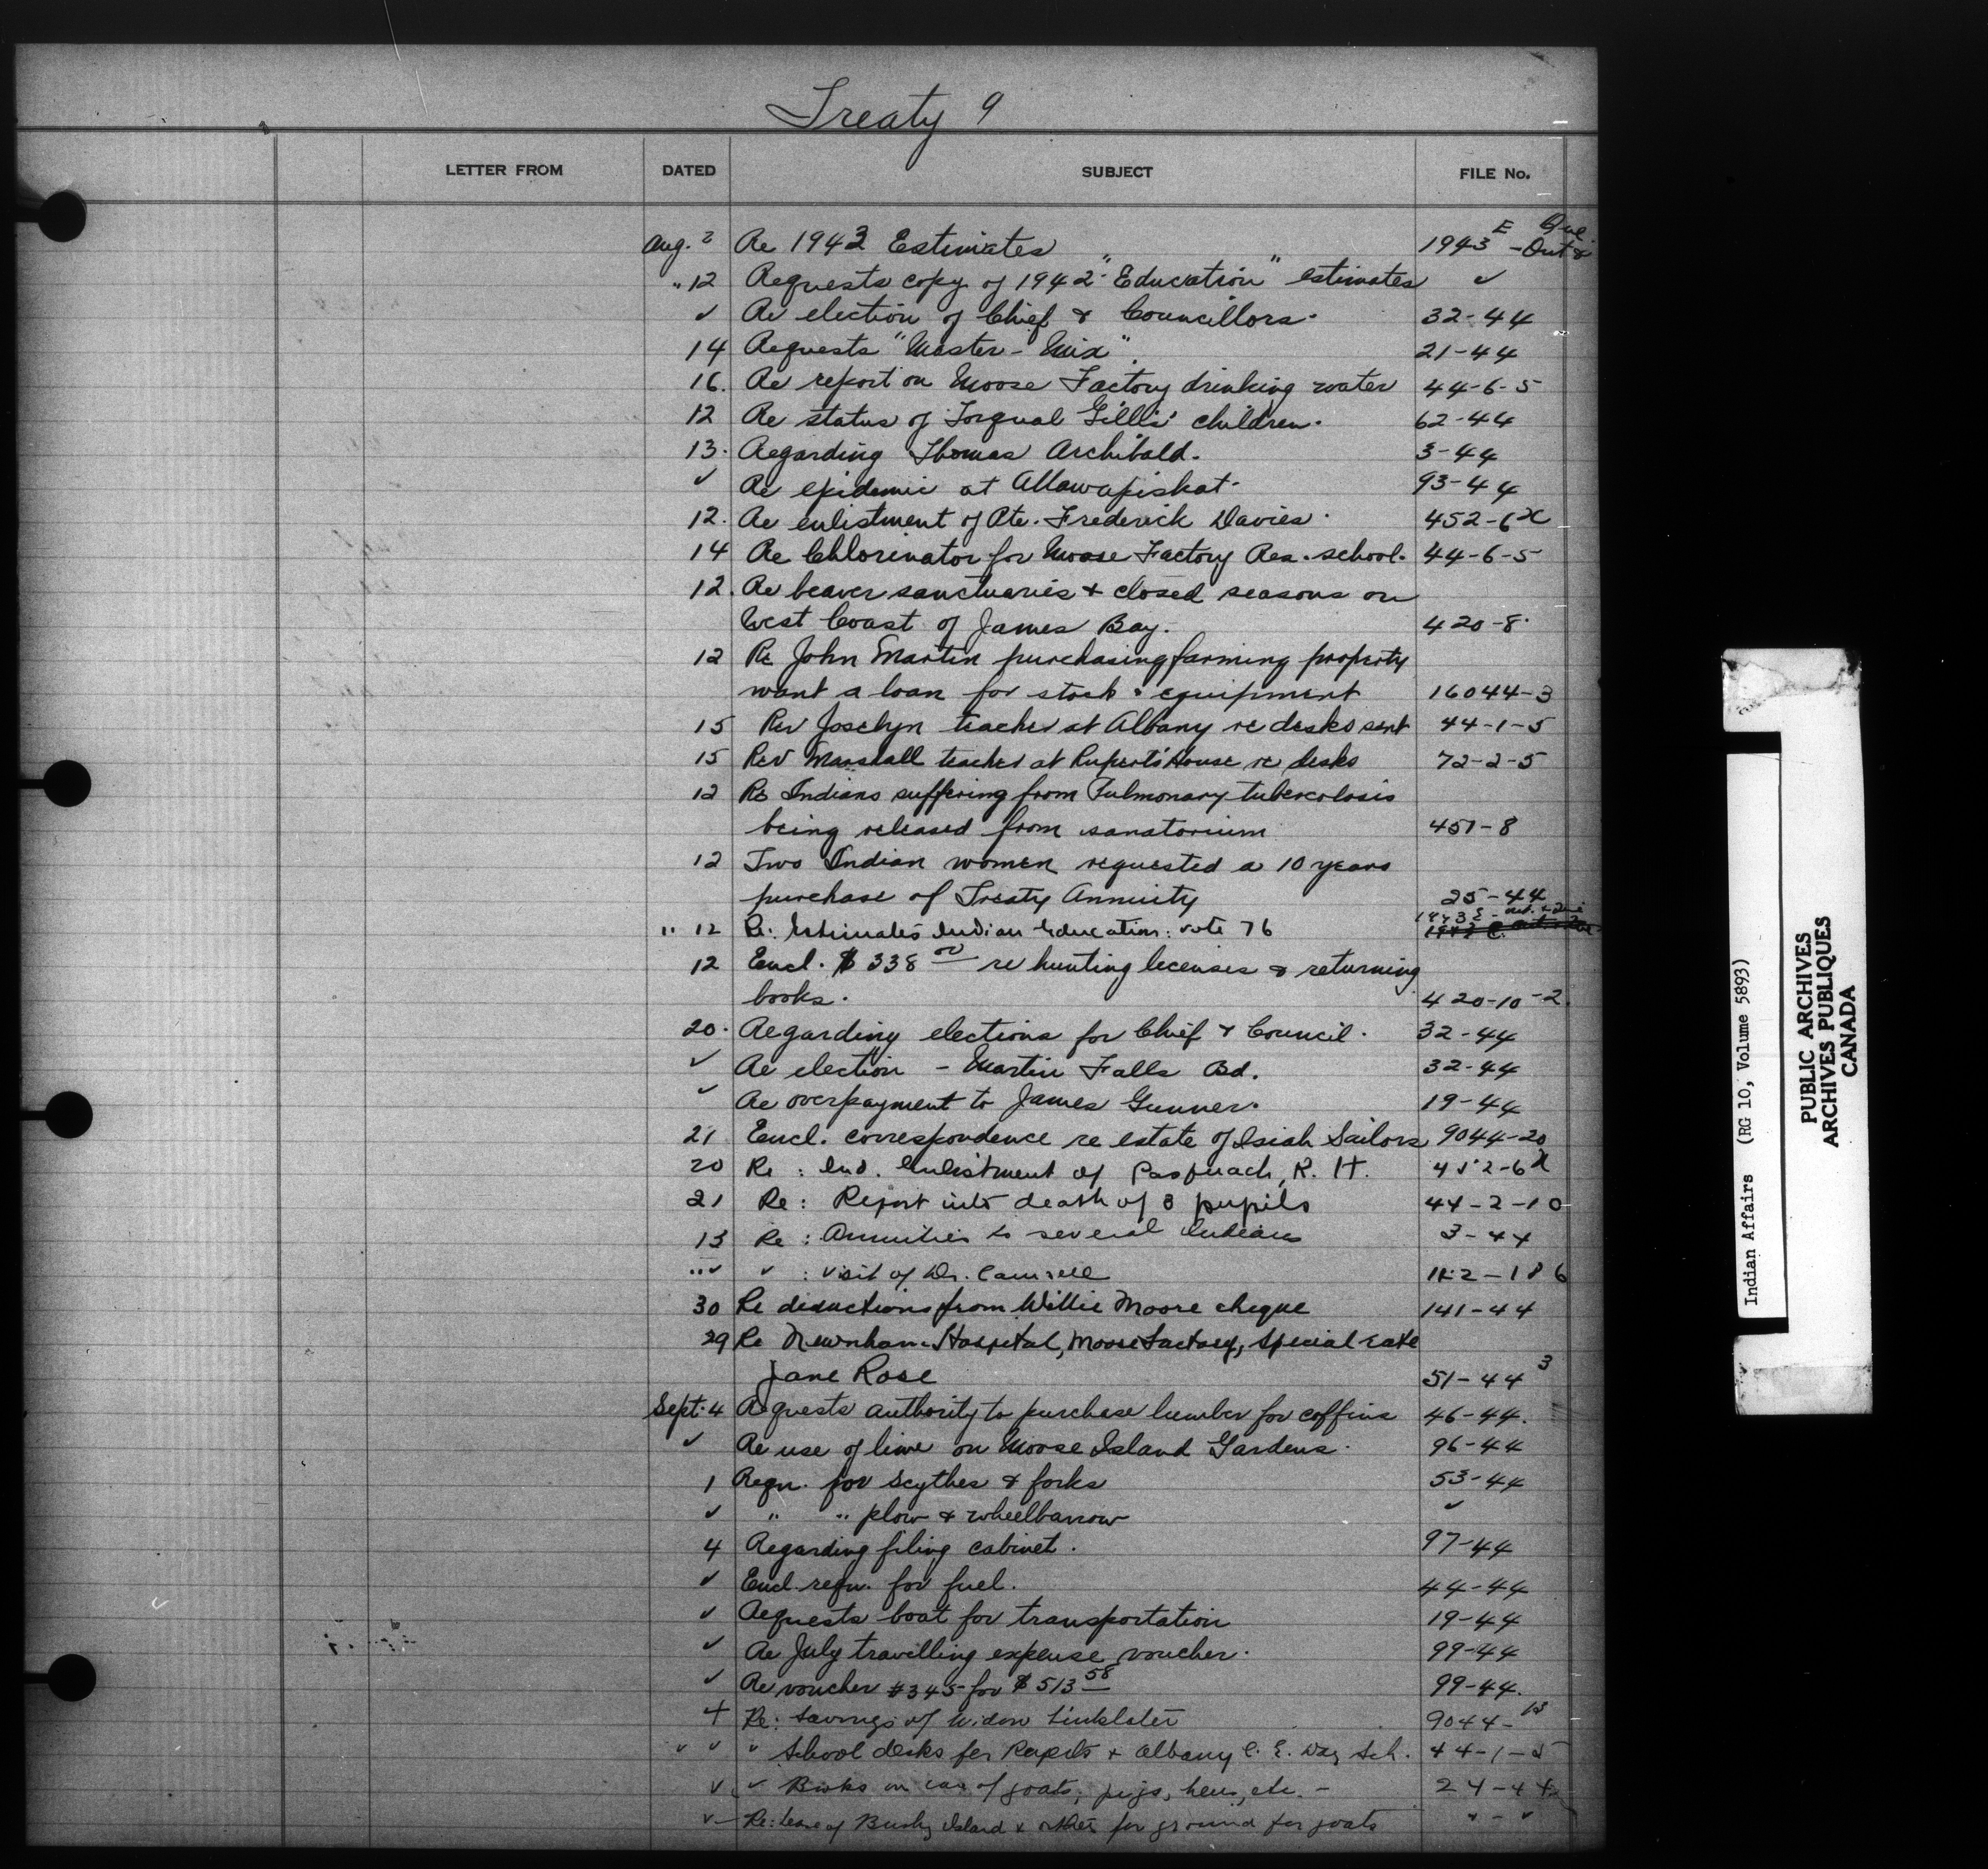 Treaty 9
LETTER FROM DATED SUBJECT FILE No.
Aug. 2 Re 1943 Estimates 1943 E - Ont & Que
" 12 Requests copy of 1942 "Education" estimates ✓
✓ Re election of Chief & Councillors. 32-44
14 Requests "Master-Mix". 21-44
16. Re report on Moose Factory drinking water 44-6-5
12 Re status of Torqual Gillis' children. 62-44
13. Regarding Thomas Archibald. 3-44
✓ Re epidemic at Attawapiskat. 93-44
12. Re enlistment of Pte. Frederick Davies. 452-6
14 Re Chlorinator for Moose Factory Res. school. 44-6-5
12. Re beaver sanctuaries & closed seasons on
West Coast of James Bay. 420-8.
12 Re John Martin purchasing farming property
want a loan for stock & equipment 16044-3
15 Rev Joselyn teacher at Albany re desks sent 44-1-5
15 Rev Marshall teacher at Rupert's House re desks 72-2-5
12 Re Indians suffering from Pulmonary tubercolosis
being released from sanatorium 451-8
12 Two Indian women requested a 10 years
purchase of Treaty Annuity 25-44
" 12 Re: Estimates Indian Education: vote 76 1943 E -
12 Encl. $338 00 re hunting licenses & returning
books. 420-10-2.
20. Regarding elections for Chief & Council. 32-44
✓ Re election - Martin Falls Bd. 32-44
✓ Re overpayment to James Gunner. 19-44
21 Encl. correspondence re estate of Isiah Sailors 9044-20
20 Re: Ind. Enlistment of R. H. 452-6
21 Re: Report into death of 3 pupils 44-2-10
13 Re: Annuities to several Indians 3-44
" ✓ ✓ : visit of Dr. Camsell
30 Re deductions from Willie Moore cheque 141-44
29 Re Newnham Hospital, Moose Factory, special rate
Jane Rose 51-44 3
Sept. 4 Requests authority to purchase lumber for coffins 46-44.
✓ Re use of lime on Moose Island Gardens. 96-44
1 Reqn. for scythes & forks 53-44
✓ " " plow & wheelbarrow ✓
4 Regarding filing cabinet. 97-44
✓ Encl. reqn. for fuel. 44-44
✓ Requests boat for transportation 19-44
✓ Re July travelling expense voucher. 99-44
✓ Re voucher #345 for $513 58 99-44.
4 Re: Savings of Widow Linklater 9044-13
✓ ✓ " School desks for Ruperts & Albany C. E. Day Sch. 44-1-5
✓ ✓ Books on care of goats, pigs, hens, etc. - 24-44
✓ - Re: lease of Bushy Island & other for ground for goats " - "
Indian Affairs (RG 10, Volume 5893)
PUBLIC ARCHIVES
ARCHIVES PUBLIQUES
CANADA